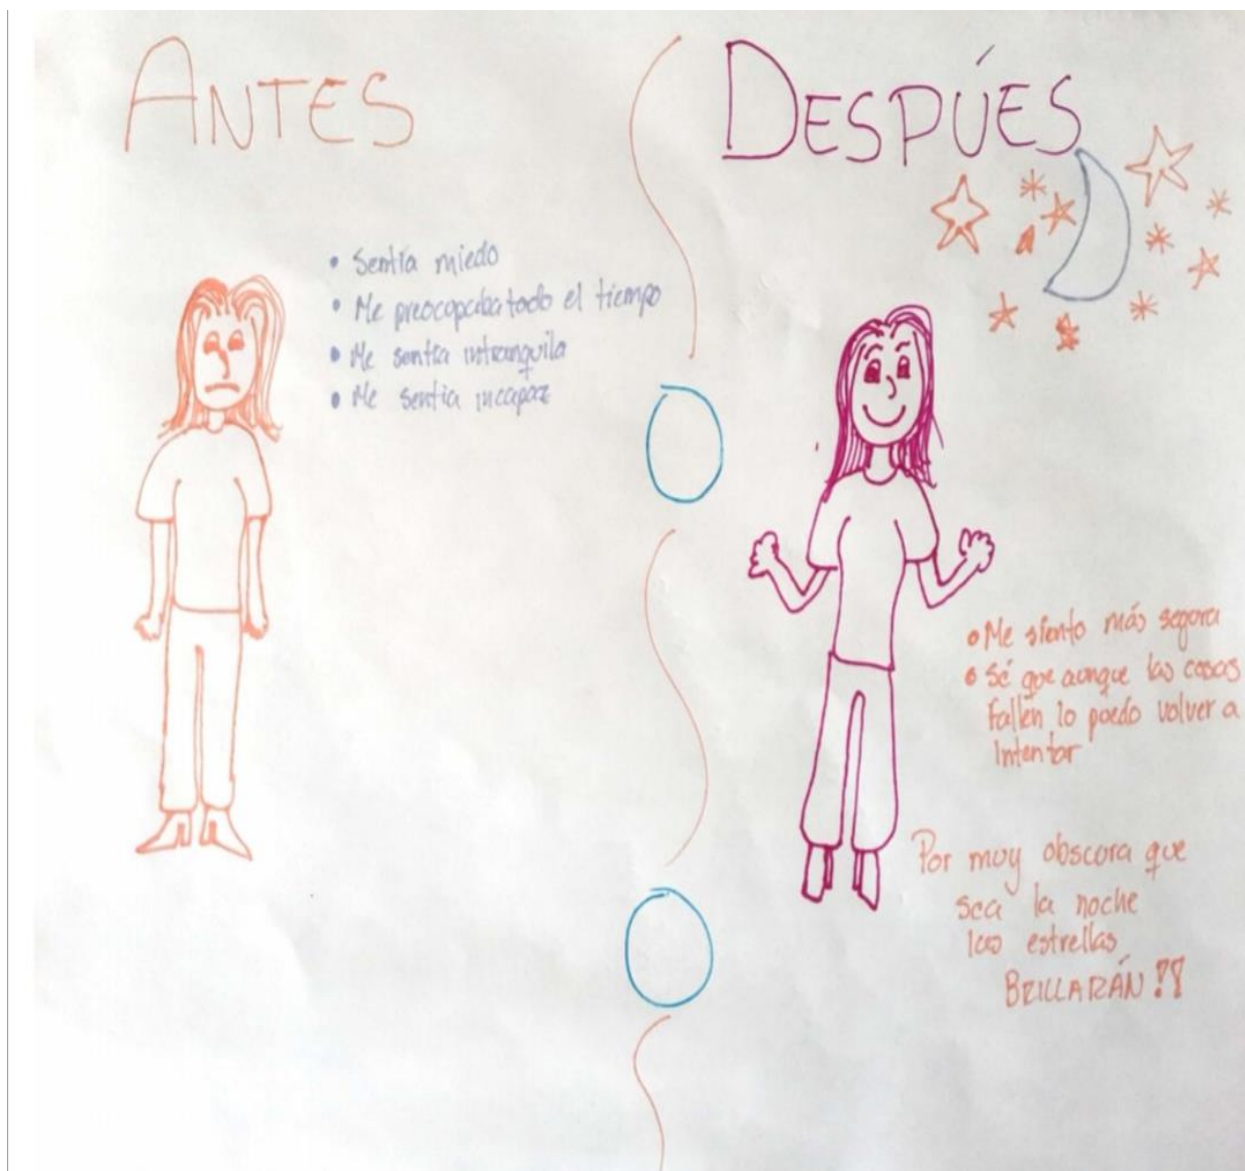 ANTES
• Sentía miedo
• Me preocopaba todo el tiempo
• Me sentía intranquila
• Me sentía incapaz
DESPÚES
• Me siento más segura
• Sé que aunque las cosas
fallen lo puedo volver a
Intentar
Por muy obscura que
sea la noche
las estrellas
BRILLARÁN !!